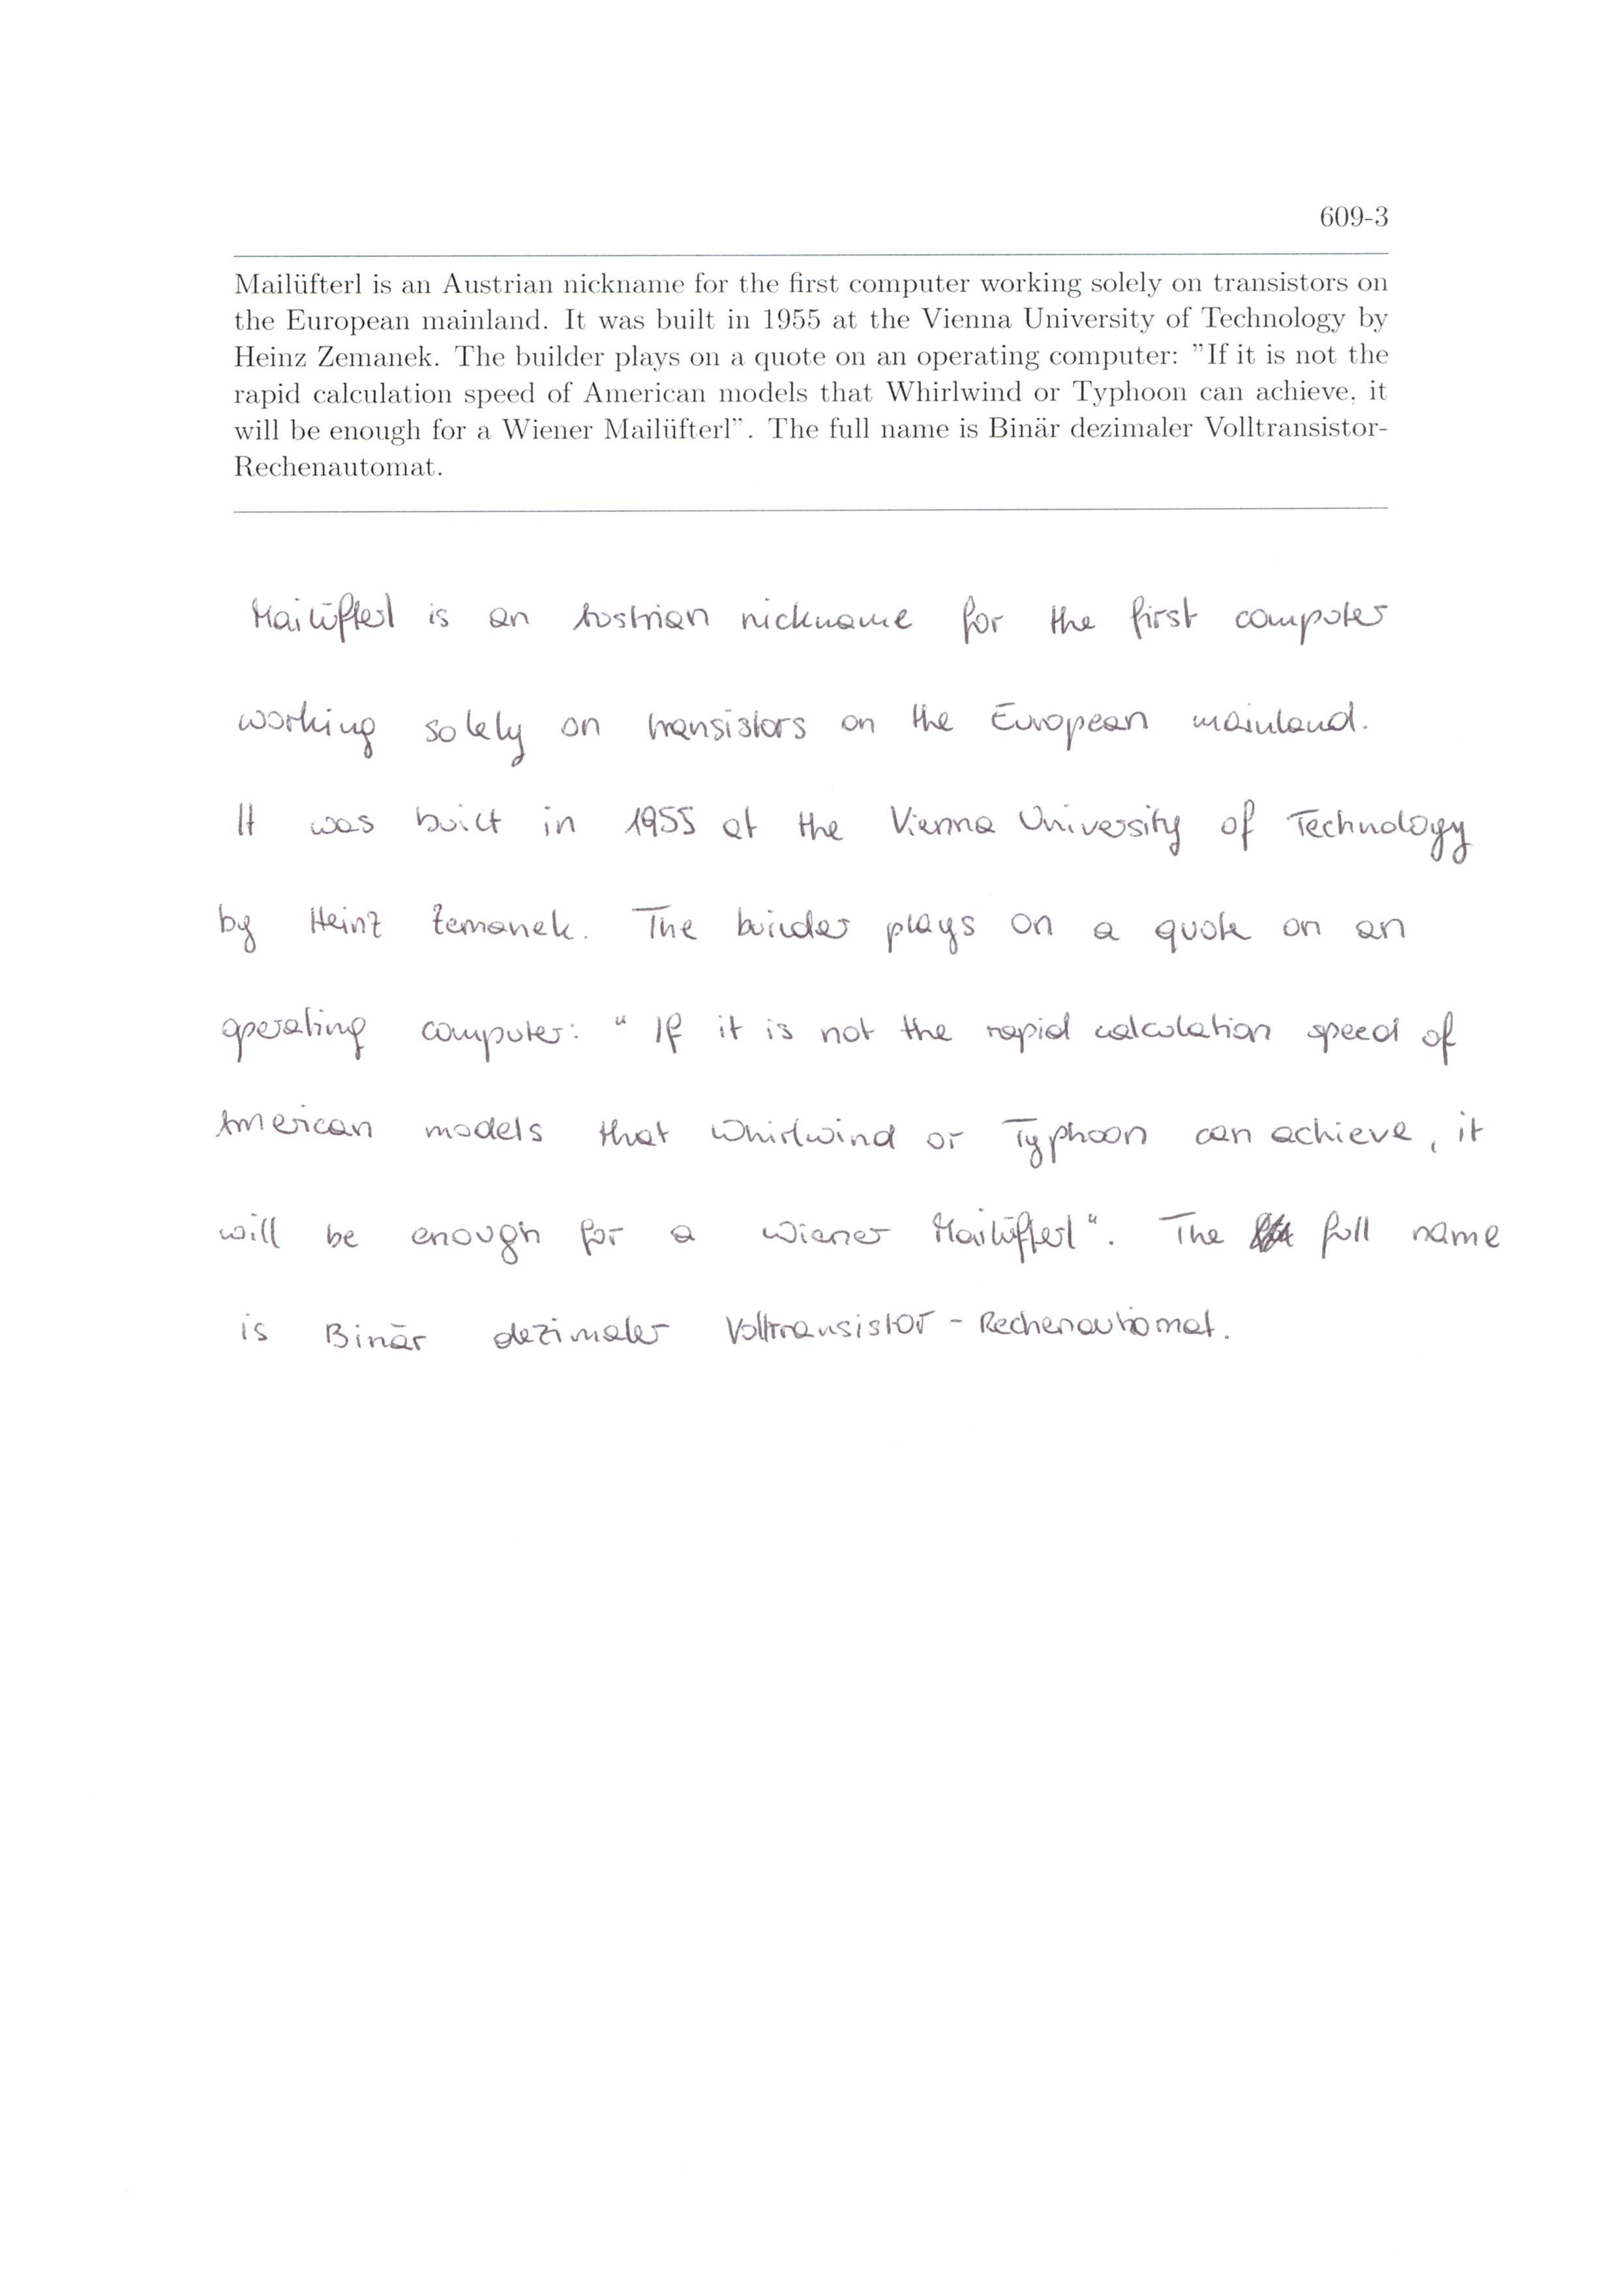 609-3
Mailüfterl is an Austrian nickname for the first computer working solely on transistors on
the European mainland. It was built in 1955 at the Vienna University of Technology by
Heinz Zemanek. The builder plays on a quote on an operating computer: ”If it is not the
rapid calculation speed of American models that Whirlwind or Typhoon can achieve, it
will be enough for a Wiener Mailüfterl”. The full name is Binär dezimaler Volltransistor-
Rechenautomat.
Mailüfterl is an Austrian nickname for the first computer
working solely on transistors on the European mainland.
It was built in 1955 at the Vienna University of Technology
by Heinz Zemanek. The builder plays on a quote on an
operating computer: “ If it is not the rapid calculation speed of
American models that Whirlwind or Typhoon can achieve, it
will be enough for a Wiener Mailüfterl“. The full name
is Binär dezimaler Volltransistor - Rechenautomat.